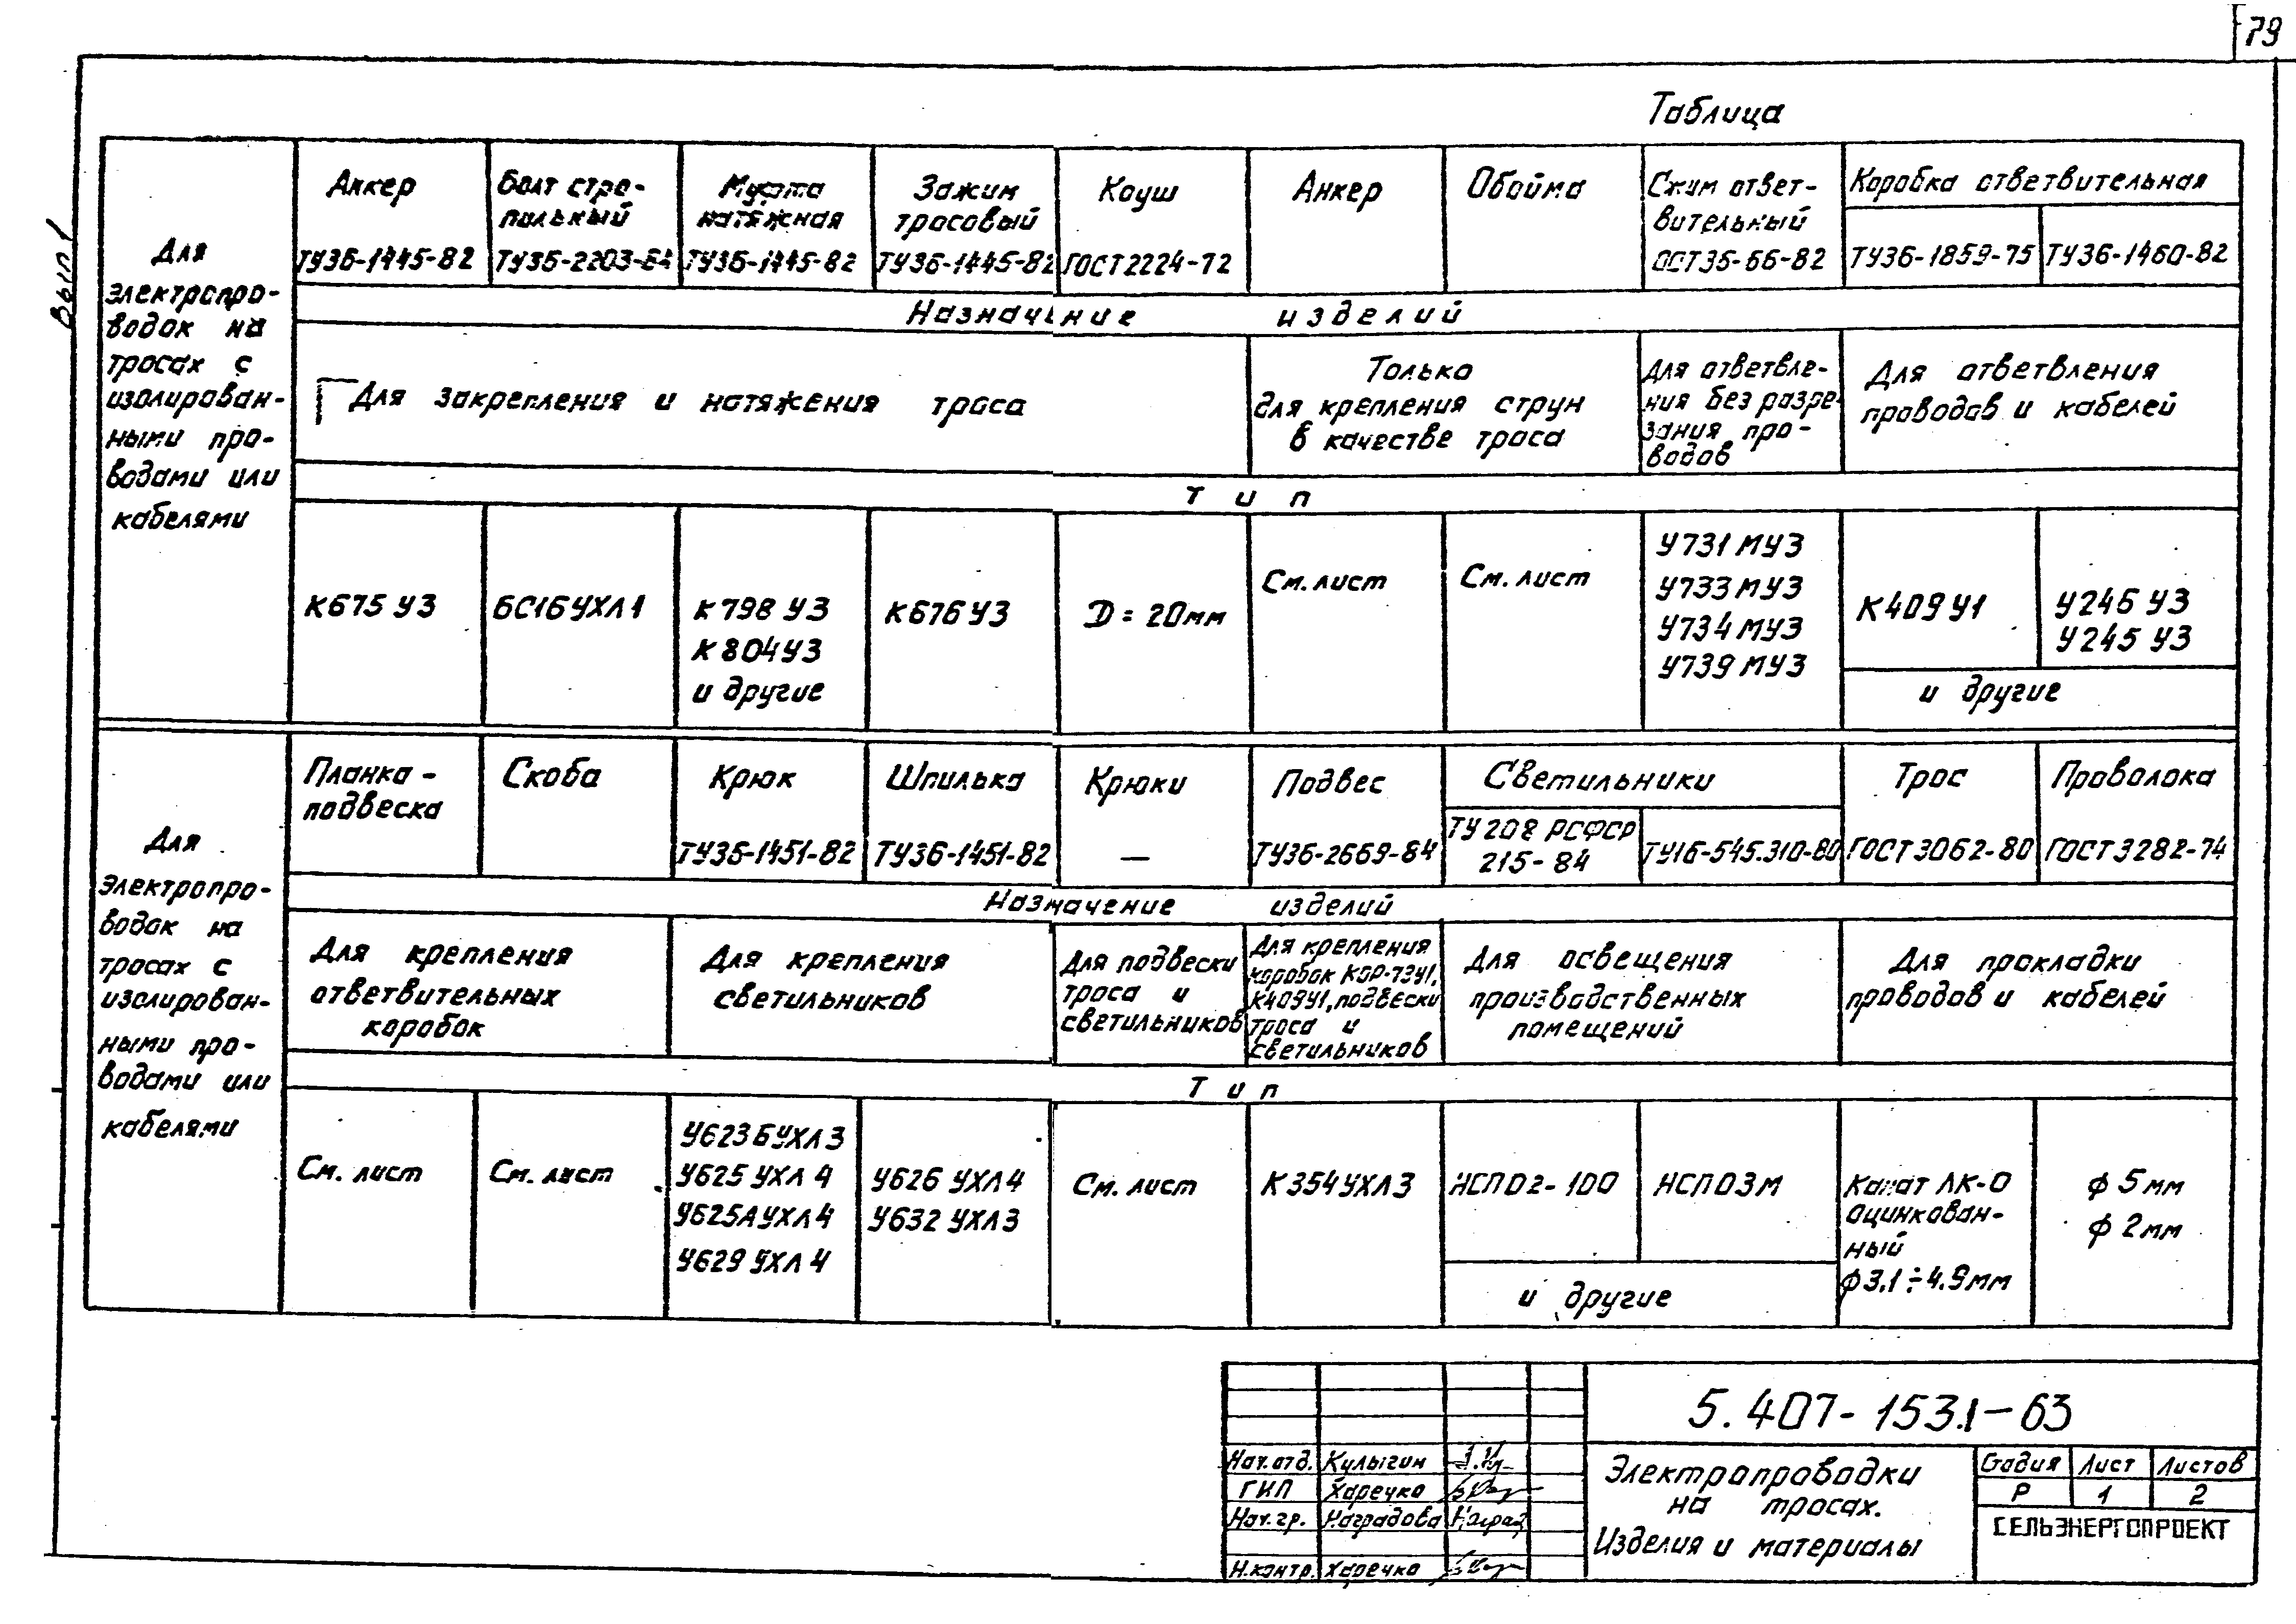 79
Вып 1
Таблица
Для
электропро-
водок на
тросах с
изолирован-
ными про-
водами или
кабелями
Анкер
ТУ36-1445-82
Болт стро-
пильный
ТУ36-2203-84
Муфта
натяжная
ТУ36-1445-82
Зажим
тросовый
ТУ36-1445-82
Коуш
ГОСТ2224-72
Анкер
Обойма
Сжим ответ-
вительный
ОСТ36-66-82
Коробка ответвительная
ТУ36-1859-75
ТУ36-1460-82
Назначение изделий
Для закрепления и натяжения троса
Только
для крепления струн
в качестве троса
Для ответвле-
ния без разре-
зания про-
водов
Для ответвления
проводов и кабелей
Тип
К675 У3
БС16УХЛ1
К798 У3
К804У3
и другие
К676У3
D = 20мм
См. лист
См. лист
У731 МУ3
У733МУ3
У734 МУ3
У739 МУ3
К409У1
У246 У3
У245 У3
и другие
Для
электропро-
водок на
тросах с
изолирован-
ными про-
водами или
кабелями
Планка-
подвеска
Скоба
Крюк
ТУ36-1451-82
Шпилька
ТУ36-1451-82
Крюки
—
Подвес
ТУ36-2669-84
Светильники
ТУ 208 РСФСР
215-84
ТУ16-545.310-80
Трос
ГОСТ3062-80
Проволока
ГОСТ3282-74
Назначение изделий
Для крепления
ответвительных
коробок
Для крепления
светильников
Для подвески
троса и
светильников
Для крепления
коробок КОР-73У1,
К409У1, подвески
троса и
светильников
Для освещения
производственных
помещений
Для прокладки
проводов и кабелей
Тип
См. лист
См. лист
У623БУХЛ3
У625 УХЛ4
У625АУХЛ4
У629 УХЛ4
У626 УХЛ4
У632 УХЛ3
См. лист
К354УХЛ3
НСП02-100
НСП03М
и другие
Канат ЛК-О
оцинкован-
ный
ф3.1÷4.9мм
ф 5мм
ф 2мм
5.407-153.1-63
Нач.отд. Кулыгин
ГИП Харечко
Нач.гр. Наградова
Н.контр. Харечко
Электропроводки
на тросах.
Изделия и материалы
Стадия Лист Листов
Р 1 2
СЕЛЬЭНЕРГОПРОЕКТ